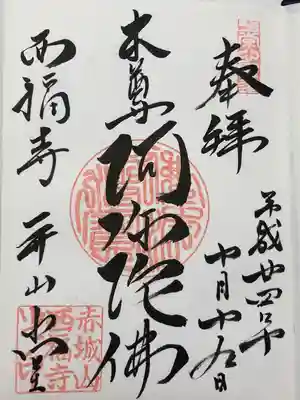 奉拝
平成廿四年
十月十九日
本尊 阿弥陀佛
西福寺 开山堂
赤城山
西福寺